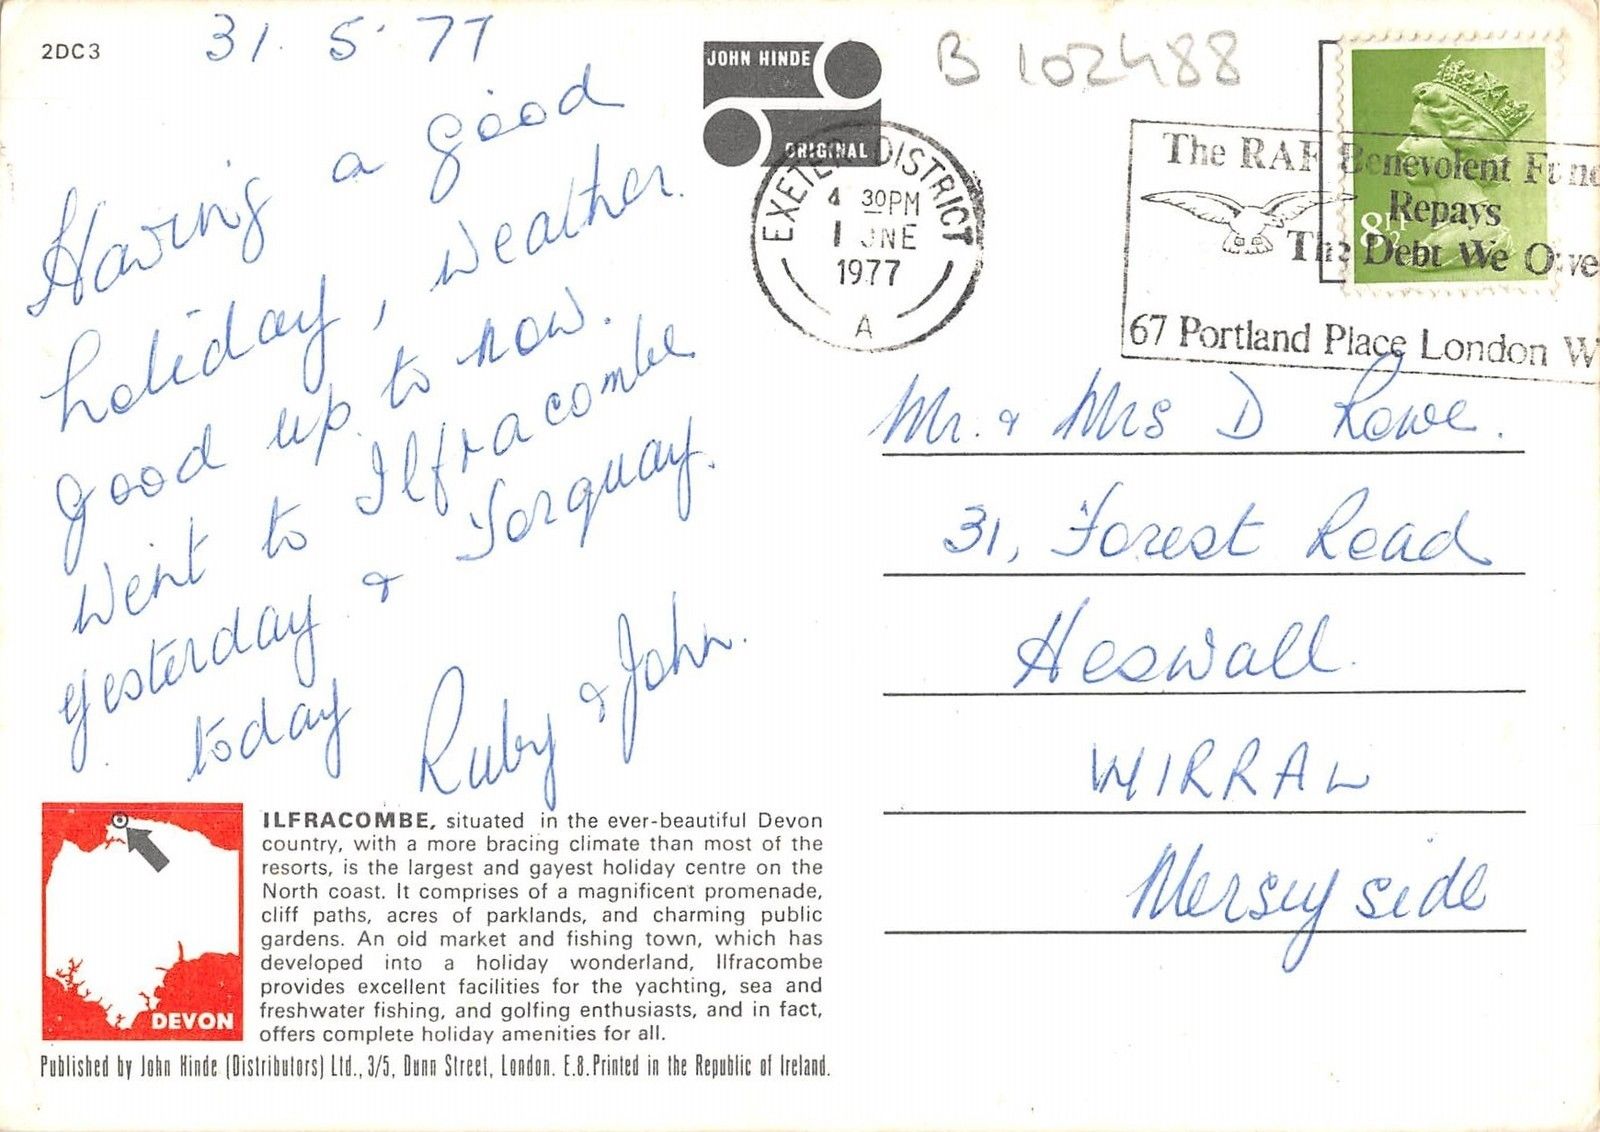 2DC3
31. 5. 77
Having a good
holiday, weather
good up to now.
Went to Ilfracombe
yesterday & Torquay.
today
Ruby & John.
JOHN HINDE
ORIGINAL
B 102488
EXETER DISTRICT
4 30PM
1 JNE
1977
A
The RAF Benevolent Fund
Repays
The Debt We Owe
67 Portland Place London W
8½P
Mr. & Mrs D Rowe.
31, Forest Road
Heswall.
WIRRAL
Merseyside
ILFRACOMBE, situated in the ever-beautiful Devon
country, with a more bracing climate than most of the
resorts, is the largest and gayest holiday centre on the
North coast. It comprises of a magnificent promenade,
cliff paths, acres of parklands, and charming public
gardens. An old market and fishing town, which has
developed into a holiday wonderland, Ilfracombe
provides excellent facilities for the yachting, sea and
freshwater fishing, and golfing enthusiasts, and in fact,
offers complete holiday amenities for all.
DEVON
Published by John Hinde (Distributors) Ltd., 3/5, Dunn Street, London. E.8. Printed in the Republic of Ireland.